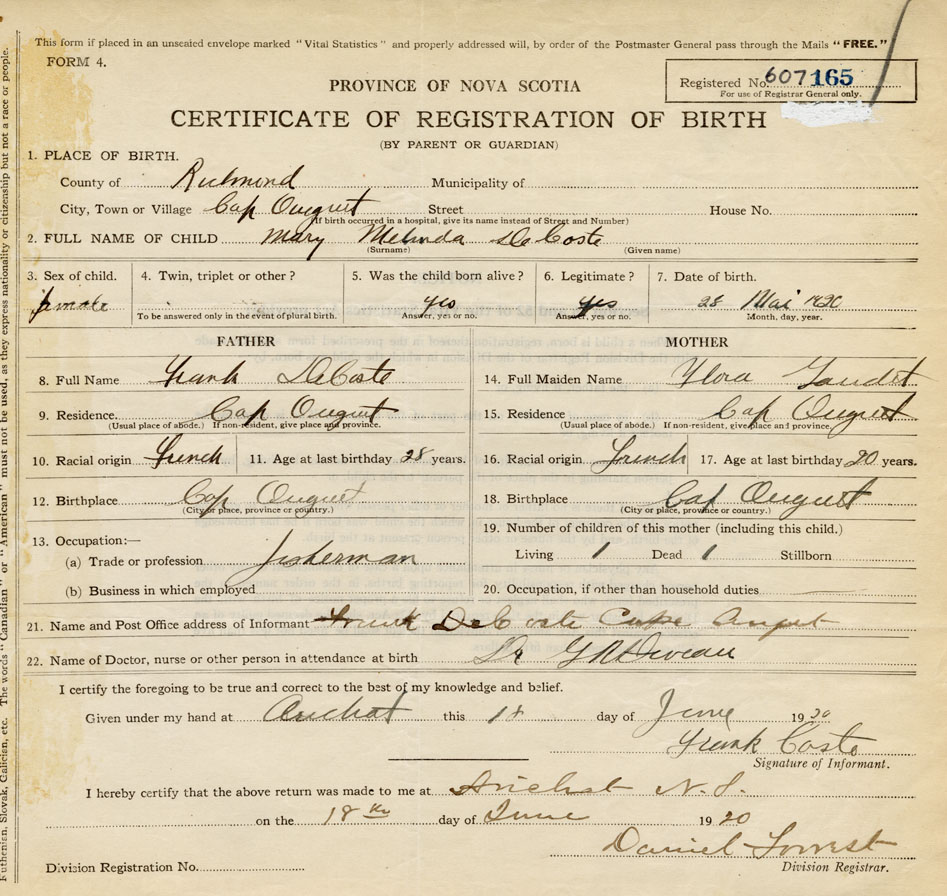 This form if placed in an unsealed envelope marked "Vital Statistics" and properly addressed will, by order of the Postmaster General pass through the Mails "FREE."
FORM 4.
Registered No. 607165
For use of Registrar General only.
PROVINCE OF NOVA SCOTIA
CERTIFICATE OF REGISTRATION OF BIRTH
(BY PARENT OR GUARDIAN)
1. PLACE OF BIRTH.
County of Richmond Municipality of
City, Town or Village Cap Ougust Street House No.
(If birth occurred in a hospital, give its name instead of Street and Number)
2. FULL NAME OF CHILD Mary Melinda DeCoste
(Surname) (Given name)
3. Sex of child. 4. Twin, triplet or other? 5. Was the child born alive? 6. Legitimate? 7. Date of birth.
female yes yes 28 Mai 1920
To be answered only in the event of plural birth. Answer, yes or no. Answer, yes or no. Month, day, year.
FATHER MOTHER
8. Full Name Frank DeCoste 14. Full Maiden Name Flora Gaudet
9. Residence. Cap Ougust 15. Residence Cap Ougust
(Usual place of abode.) If non-resident, give place and province. (Usual place of abode.) If non-resident, give place and province.
10. Racial origin French 11. Age at last birthday 28 years. 16. Racial origin French 17. Age at last birthday 20 years.
12. Birthplace Cap Ougust 18. Birthplace Cap Ougust
(City or place, province or country.) (City or place, province or country.)
13. Occupation:— 19. Number of children of this mother (including this child.)
(a) Trade or profession fisherman Living 1 Dead 1 Stillborn
(b) Business in which employed 20. Occupation, if other than household duties
21. Name and Post Office address of Informant Frank DeCoste Cape August
22. Name of Doctor, nurse or other person in attendance at birth Dr Deveau
I certify the foregoing to be true and correct to the best of my knowledge and belief.
Given under my hand at Arichat this 18 day of June 1920
Frank Coste
Signature of Informant.
I hereby certify that the above return was made to me at Arichat N.S.
on the 18th day of June 1920
Daniel Forrest
Division Registration No. Division Registrar.
Ruthenian, Slovak, Galician, etc. The words "Canadian" or "American" must not be used, as they express nationality or citizenship but not a race or people.